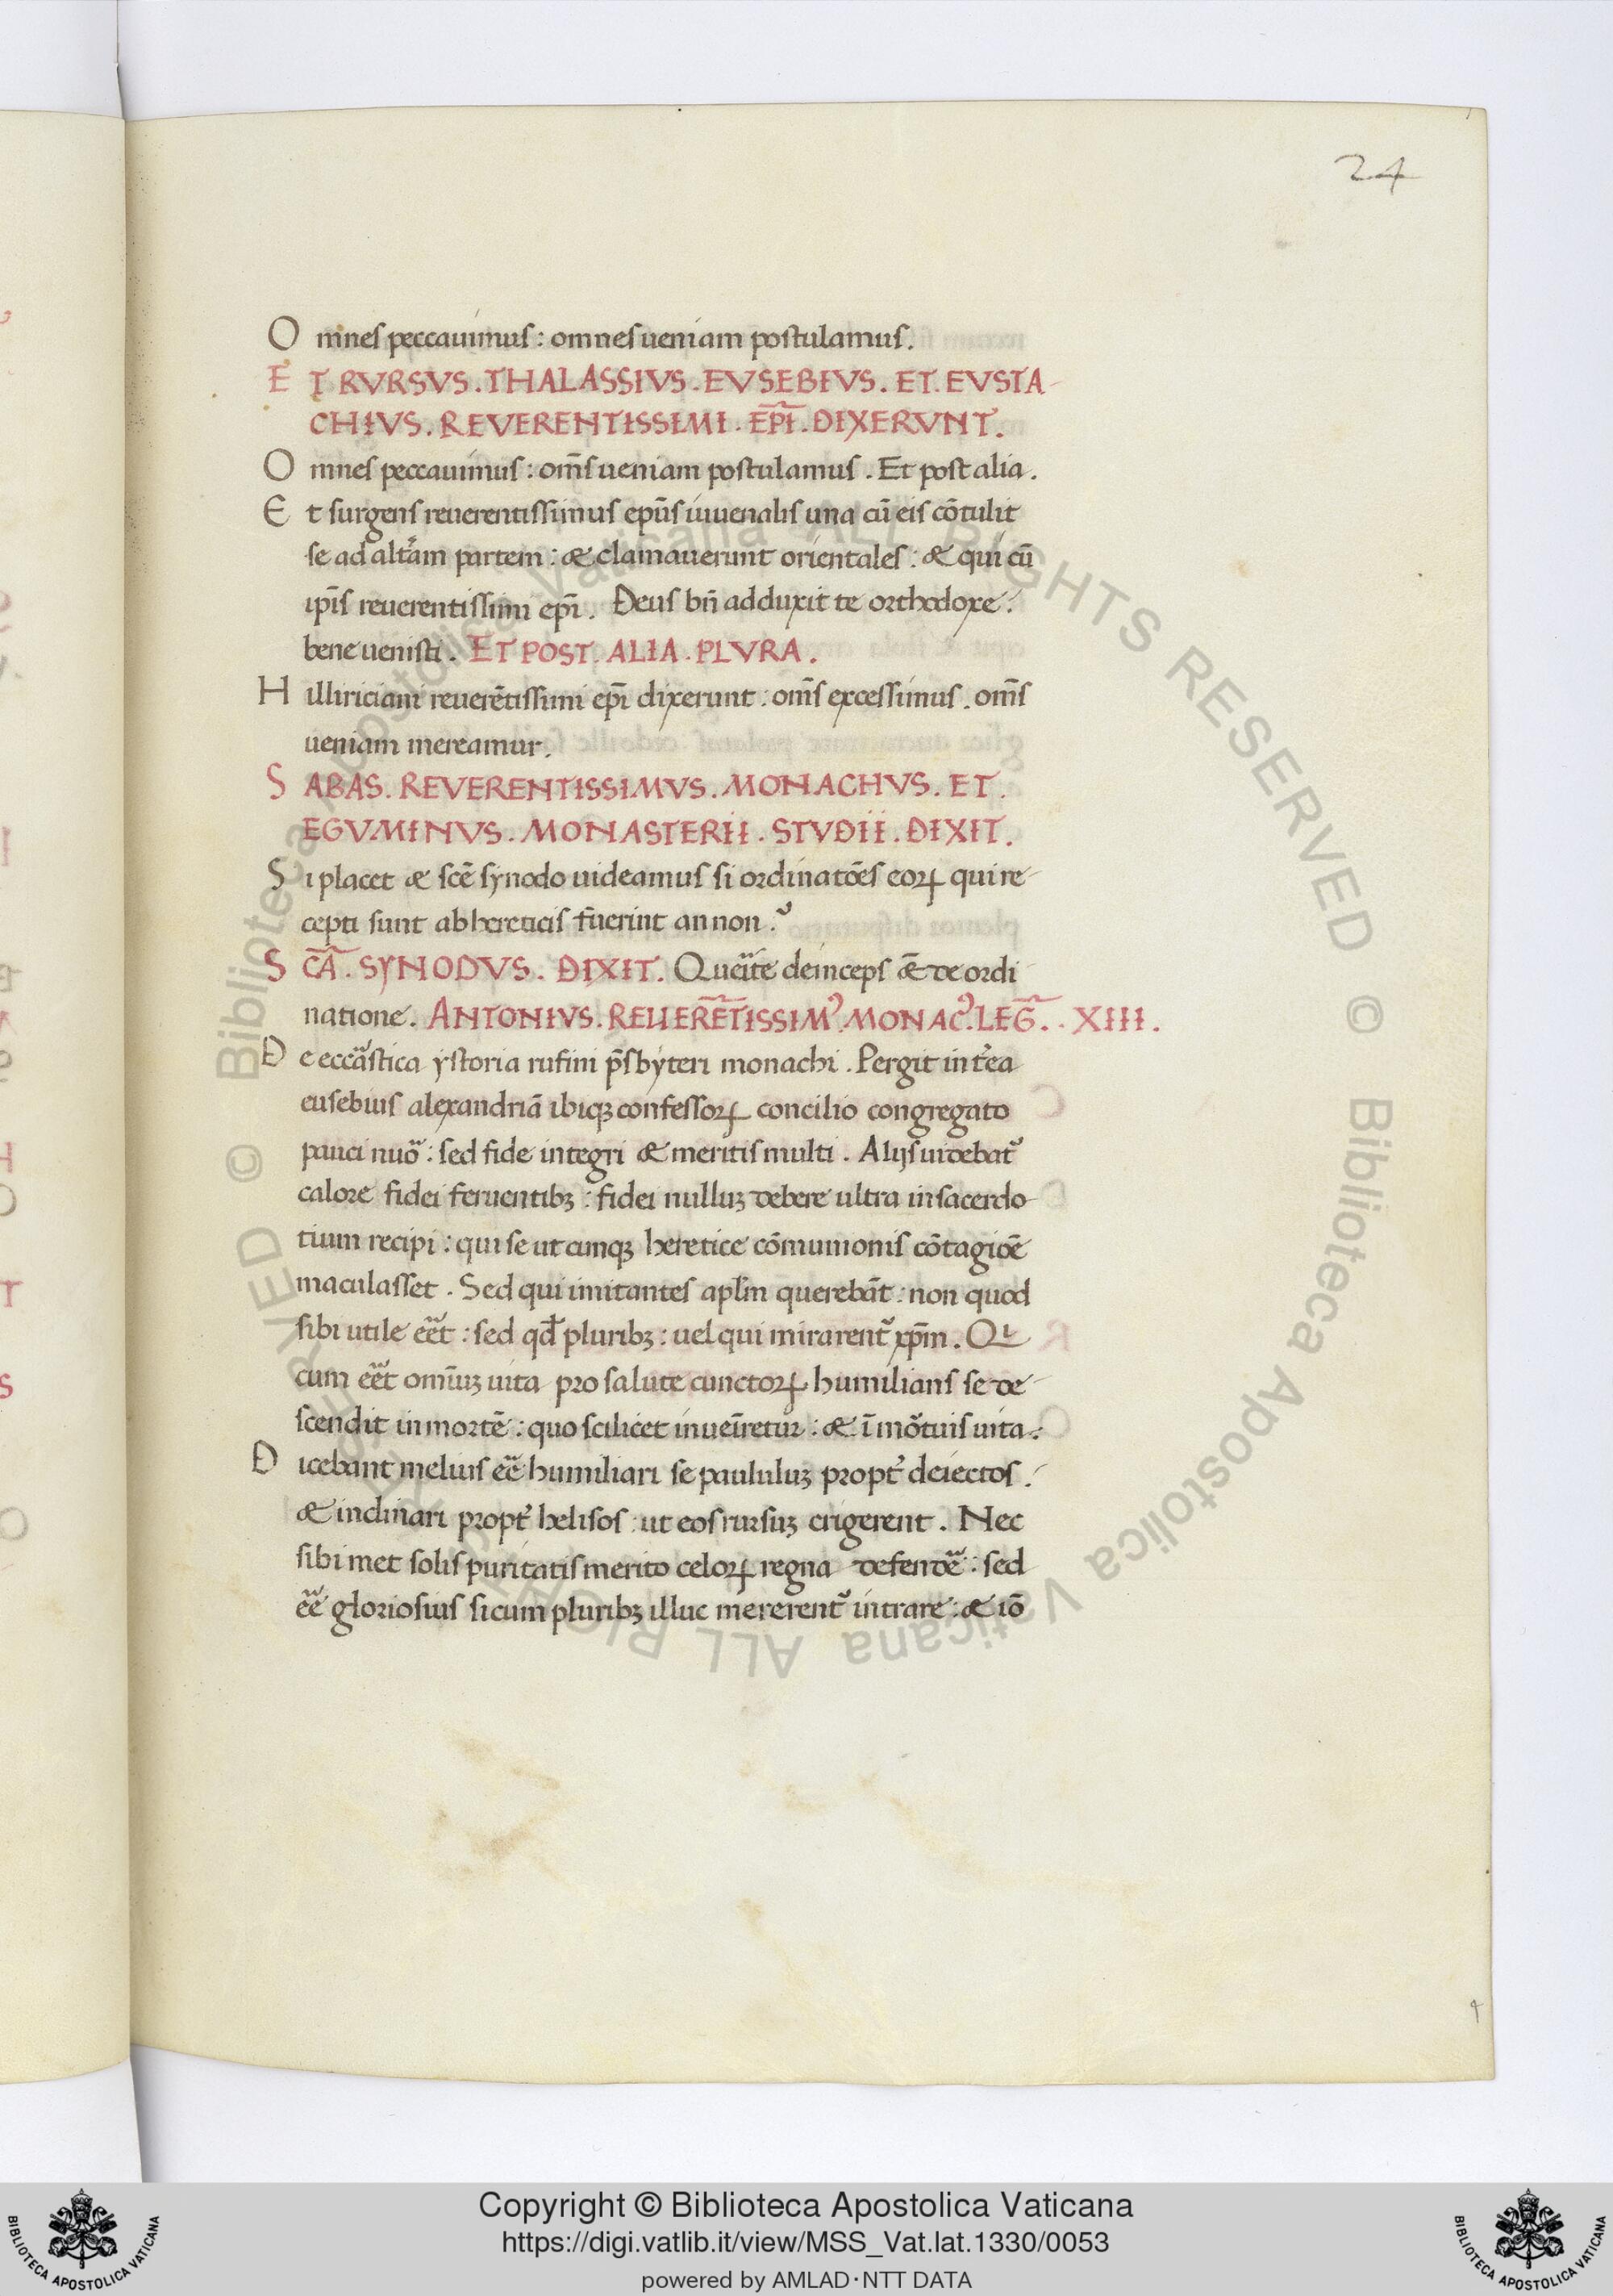 24
Omnes peccauimus: omnes ueniam postulamus.
ET RVRSVS. THALASSIVS. EVSEBIVS. ET. EVSTA-
CHIVS. REVERENTISSIMI. EPĪ. DIXERVNT.
Omnes peccauimus: om̄s ueniam postulamus. Et post alia.
Et surgens reuerentissimus epūs iuuenalis una cū eis cōtulit
se ad altām partem: & clamauerunt orientales: & qui cū
ip̄is reuerentissimi ep̄i. Deus bn̄ adduxit te orthodoxe:
bene uenisti. ET POST. ALIA. PLVRA.
Hilliriciani reuerētissimi ep̄i dixerunt: om̄s excessimus. om̄s
ueniam mereamur.
SABAS. REVERENTISSIMVS. MONACHVS. ET.
EGVMINVS. MONASTERII. STVDII. DIXIT.
Si placet & scē synodo uideamus si ordinatōes eoꝝ qui re-
cepti sunt ab hereticis fuerint an non?
SCĀ. SYNODVS. DIXIT. Querite deinceps &̄ de ordi
natione. ANTONIVS. REUERĒTISSIMꝰ. MONACꝰ. LEG̅. XIII.
De eccāstica ystoria rufini p̄sbyteri monachi. Pergit intėa
eusebius alexandriā ibiqꝫ confessoꝝ concilio congregato
pauci nuō: sed fide integri & meritis multi. Alijs uidebat᷑
calore fidei feruentibꝫ: fidei nulluꝫ debere ultra in sacerdo-
tium recipi: qui se utcunqꝫ heretice cōmunionis cōtagiōe
maculasset. Sed qui imitantes apl̄m querebāt: non quod
sibi utile eēt: sed qd̄ pluribꝫ: uel qui mirarent᷑ xp̄m. Qi
cum eēt omīuꝫ uita pro salute cunctoꝝ humilians se de-
scendit in mortē: quo scilicet inueīretur: & ī mōtuis uita:
Dicebant melius eē humiliari se paululuꝫ propt̉ deiectos:
& inclinari propt̉ helisos: ut eos rursuꝫ erigerent. Nec
sibi met solis puritatis merito celoꝝ regna defendē: sed
eē gloriosius si cum pluribꝫ illuc mererent᷑ intrare: & iō
© Biblioteca Apostolica Vaticana ALL RIGHTS RESERVED © Biblioteca Apostolica Vaticana ALL RIGHTS RESERVED
Copyright © Biblioteca Apostolica Vaticana
https://digi.vatlib.it/view/MSS_Vat.lat.1330/0053
powered by AMLAD·NTT DATA
BIBLIOTECA APOSTOLICA VATICANA
BIBLIOTECA APOSTOLICA VATICANA